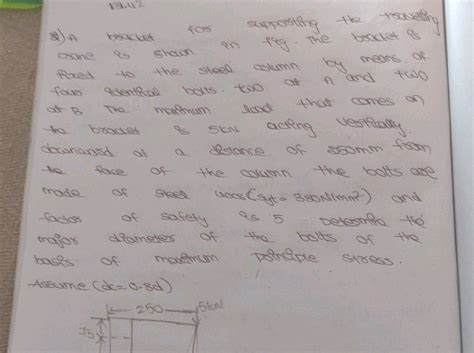 8) A bracket for supporting the travelling
crane is shown in fig. The bracket is
fixed to the steel column by means of
four identical bolts. two at n and two
at B. The maximum load that comes on
the bracket is 5kN acting vertically
downward at a distance of 250mm from
the face of the column the bolts are
made of steel (Syt = 380N/mm²) and
factor of safety is 5 Determine the
major diameter of the bolts of the
basis of maximum principle stress.
Assume (dc = 0.8d)
250 5kN
75